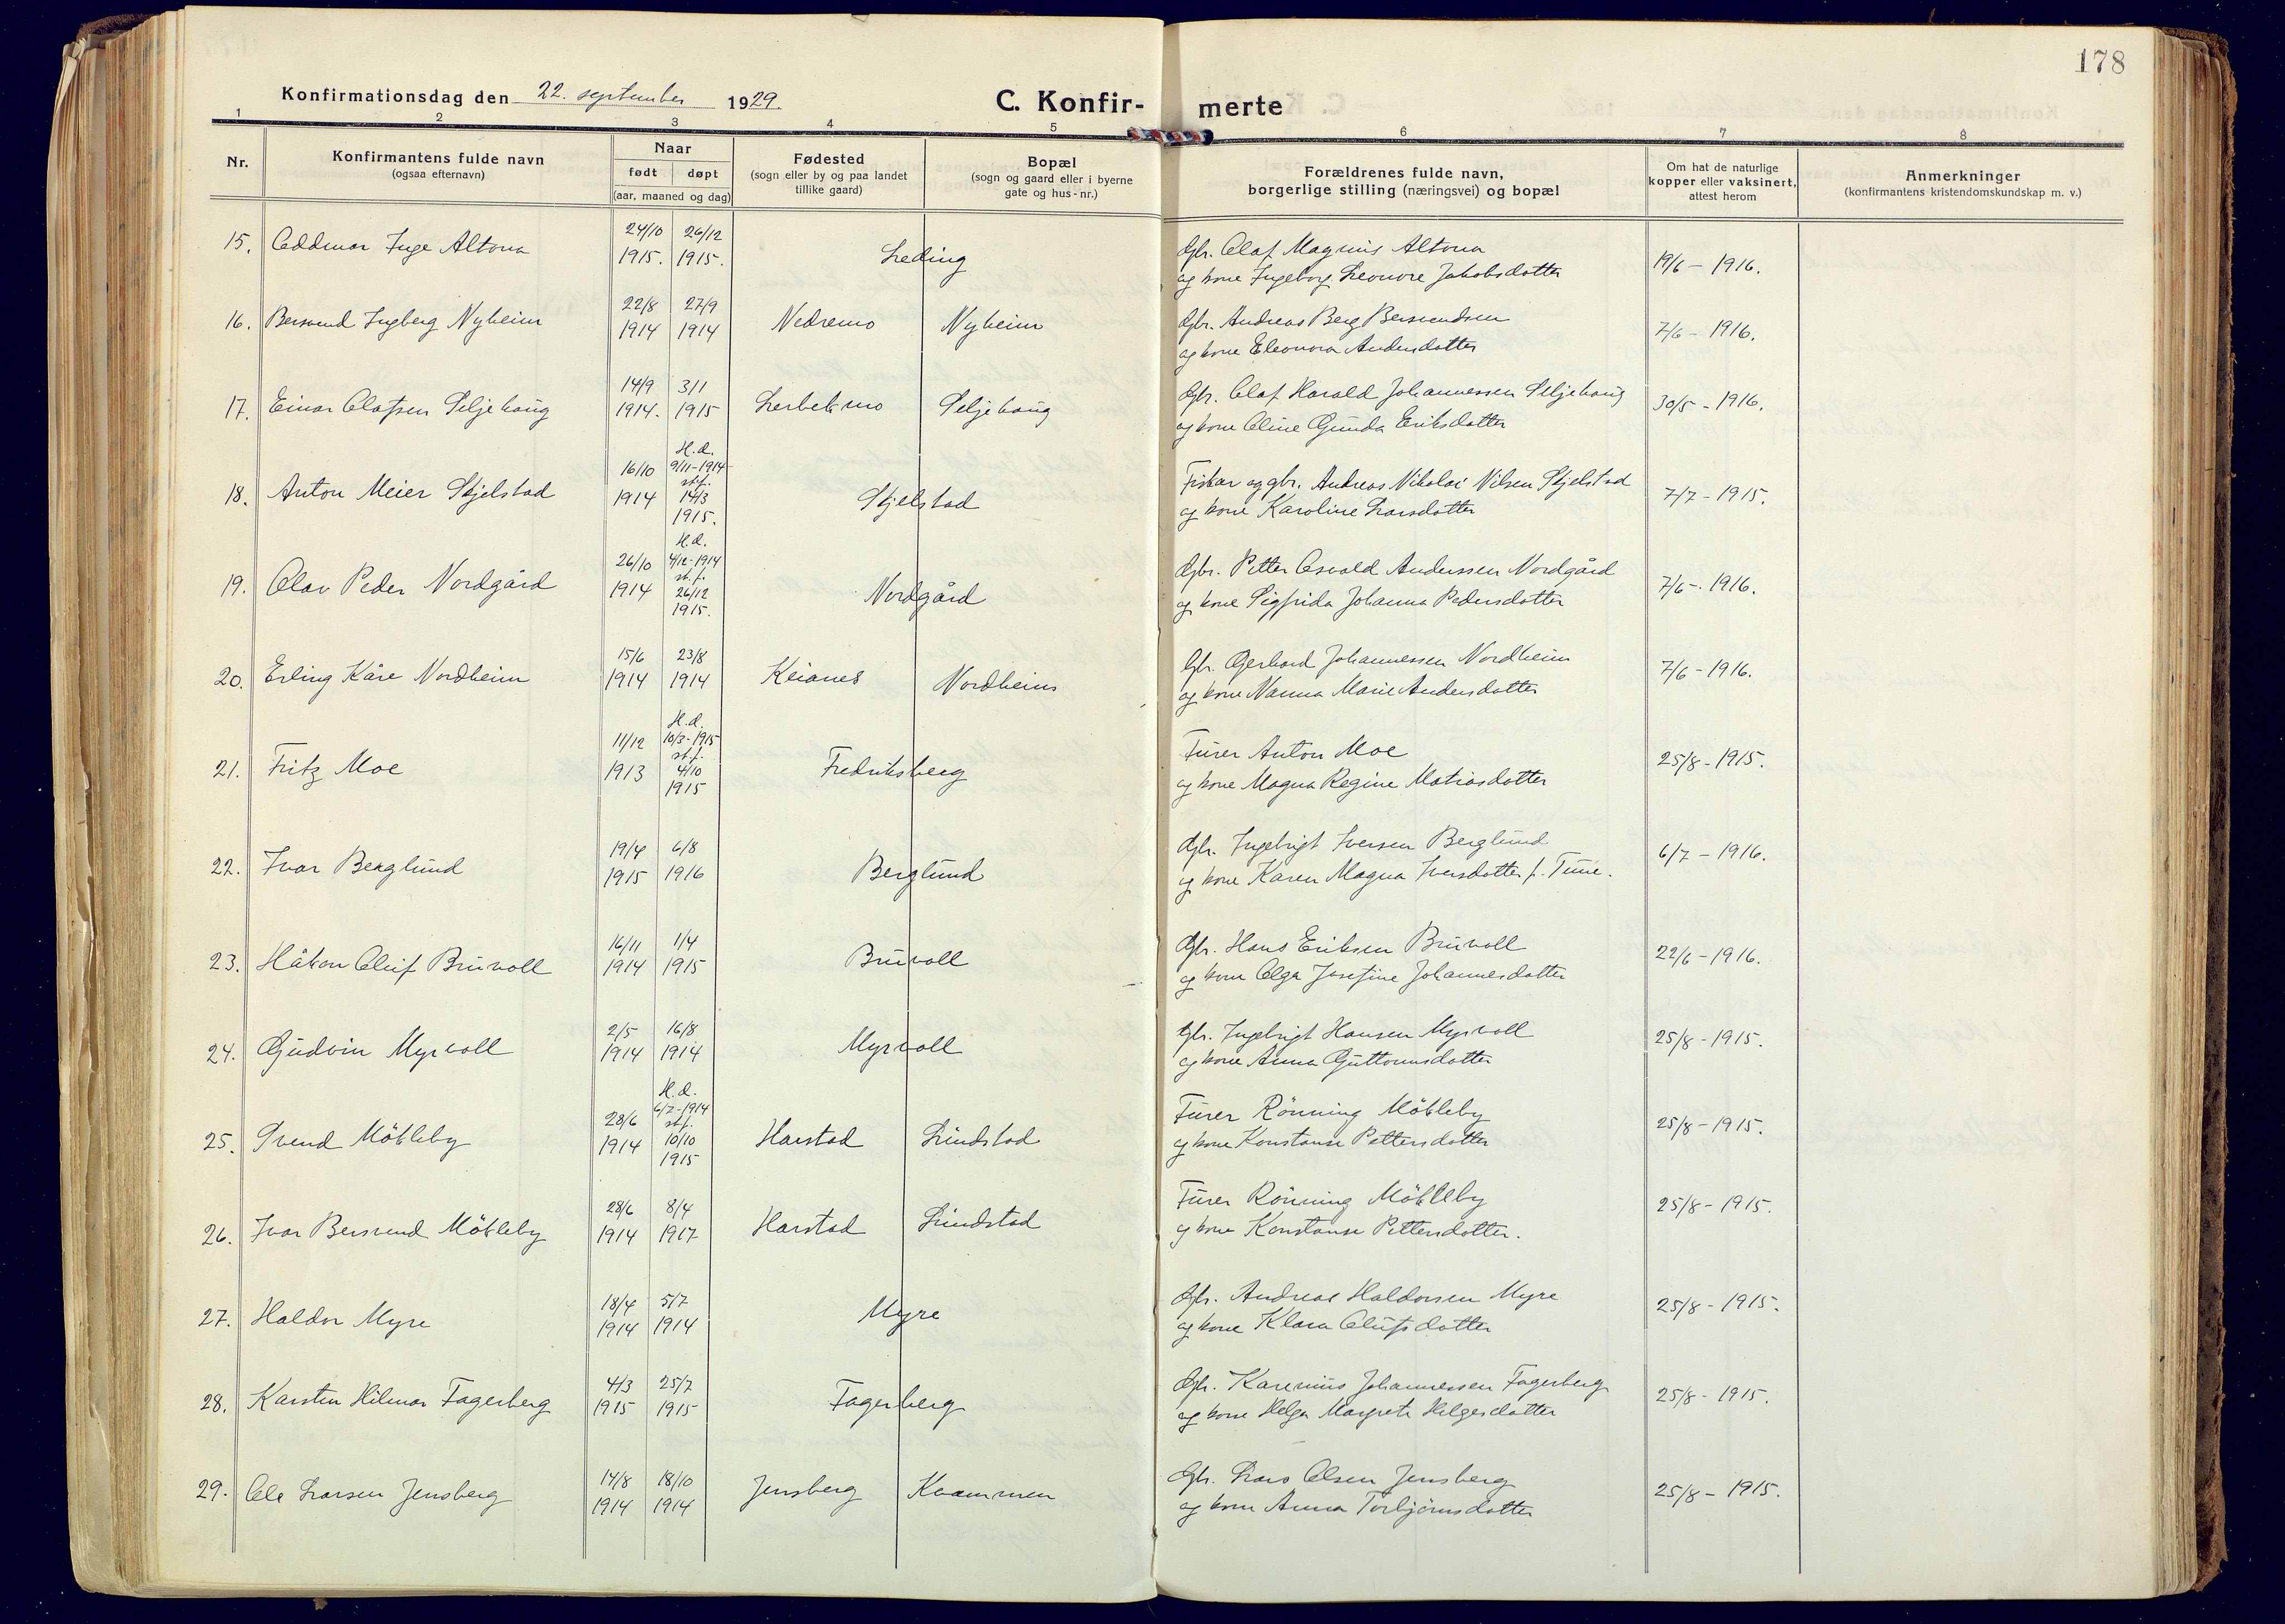 178
Konfirmationsdag den 22. september 1929. C. Konfir- merte
1 2 3 4 5 6 7 8
Nr.
Konfirmantens fulde navn
(ogsaa efternavn)
Naar
født døpt
(aar, maaned og dag)
Fødested
(sogn eller by og paa landet
tillike gaard)
Bopæl
(sogn og gaard eller i byerne
gate og hus-nr.)
Forældrenes fulde navn,
borgerlige stilling (næringsvei) og bopæl
Om hat de naturlige
kopper eller vaksinert,
attest herom
Anmerkninger
(konfirmantens kristendomskundskap m. v.)
15. Oddmar Inge Altona 24/10 1915. 26/12 1915. Leding
Gbr. Olaf Magnus Altona
og kone Ingeborg Leonore Jakobsdotter
19/6 - 1916.
16. Bersvend Ingberg Nyheim 22/8 1914 27/9 1914 Nedremo Nyheim
Gbr. Andreas Berg Bersvendsen
og kone Eleonora Andersdotter
7/6 - 1916.
17. Einar Olafsen Seljehaug 14/9 1914. 3/1 1915 Seljehaug
Gbr. Olaf Harald Johannessen Seljehaug
og kone Oline Gunda Eriksdotter
30/5 - 1916.
18. Anton Meier Skjelstad 16/10 1914 H.d. 9/11-1914 st.f. 14/3 1915. Skjelstad
Fiskar og gbr. Andreas Nikolai Nilsen Skjelstad
og kone Karoline Larsdotter
7/7 - 1915.
19. Olav Peder Nordgård 26/10 1914 H.d. 4/12-1914 st.f. 26/12 1915. Nordgård
Gbr. Petter Osvald Anderssen Nordgård
og kone Sigfrida Johanna Pedersdotter
7/6 - 1916.
20. Erling Kåre Nordheim 15/6 1914 23/8 1914 Keianes Nordheim
Gbr. Gerhard Johannessen Nordheim
og kone Nanna Marie Andersdotter
7/6 - 1916.
21. Fritz Moe 11/12 1913 H.d. 10/3-1915 st.f. 4/10 1915 Fredriksberg
Furer Anton Moe
og kone Magna Regine Matiasdotter
25/8 - 1915.
22. Ivar Berglund 19/4 1915 6/8 1916 Berglund
Gbr. Ingebrigt Iversen Berglund
og kone Karen Magna Iversdotter f. Tune.
6/7 - 1916.
23. Håkon Oluf Bruvoll 16/11 1914 1/4 1915 Bruvoll
Gbr. Hans Eriksen Bruvoll
og kone Olga Josefine Johannesdotter
22/6 - 1916.
24. Gudvin Myrvoll 2/5 1914 16/8 1914 Myrvoll
Gbr. Ingebrigt Hansen Myrvoll
og kone Anna Guttormsdotter
25/8 - 1915.
25. Svend Mökleby 28/6 1914 H.d. 6/7-1914 st.f. 10/10 1915 Harstad Lundstad
Furer Rönning Mökleby
og kone Konstanse Pettersdotter
25/8 - 1915.
26. Ivar Bersvend Mökleby 28/6 1914 8/4 1917 Harstad Lundstad
Furer Rönning Mökleby
og kone Konstanse Pettersdotter.
25/8 - 1915.
27. Haldor Myre 18/4 1914 5/7 1914 Myre
Gbr. Andreas Haldorsen Myre
og kone Klara Olufsdotter
25/8 - 1915.
28. Karsten Hilmar Fagerberg 4/3 1915 25/7 1915 Fagerberg
Gbr. Karenius Johannessen Fagerberg
og kone Helga Margrete Helgesdotter
25/8 - 1915.
29. Ole Larsen Jensberg 14/8 1914 18/10 1914 Jensberg Kvammen
Gbr. Lars Olsen Jensberg
og kone Anna Torbjörnsdotter
25/8 - 1915.